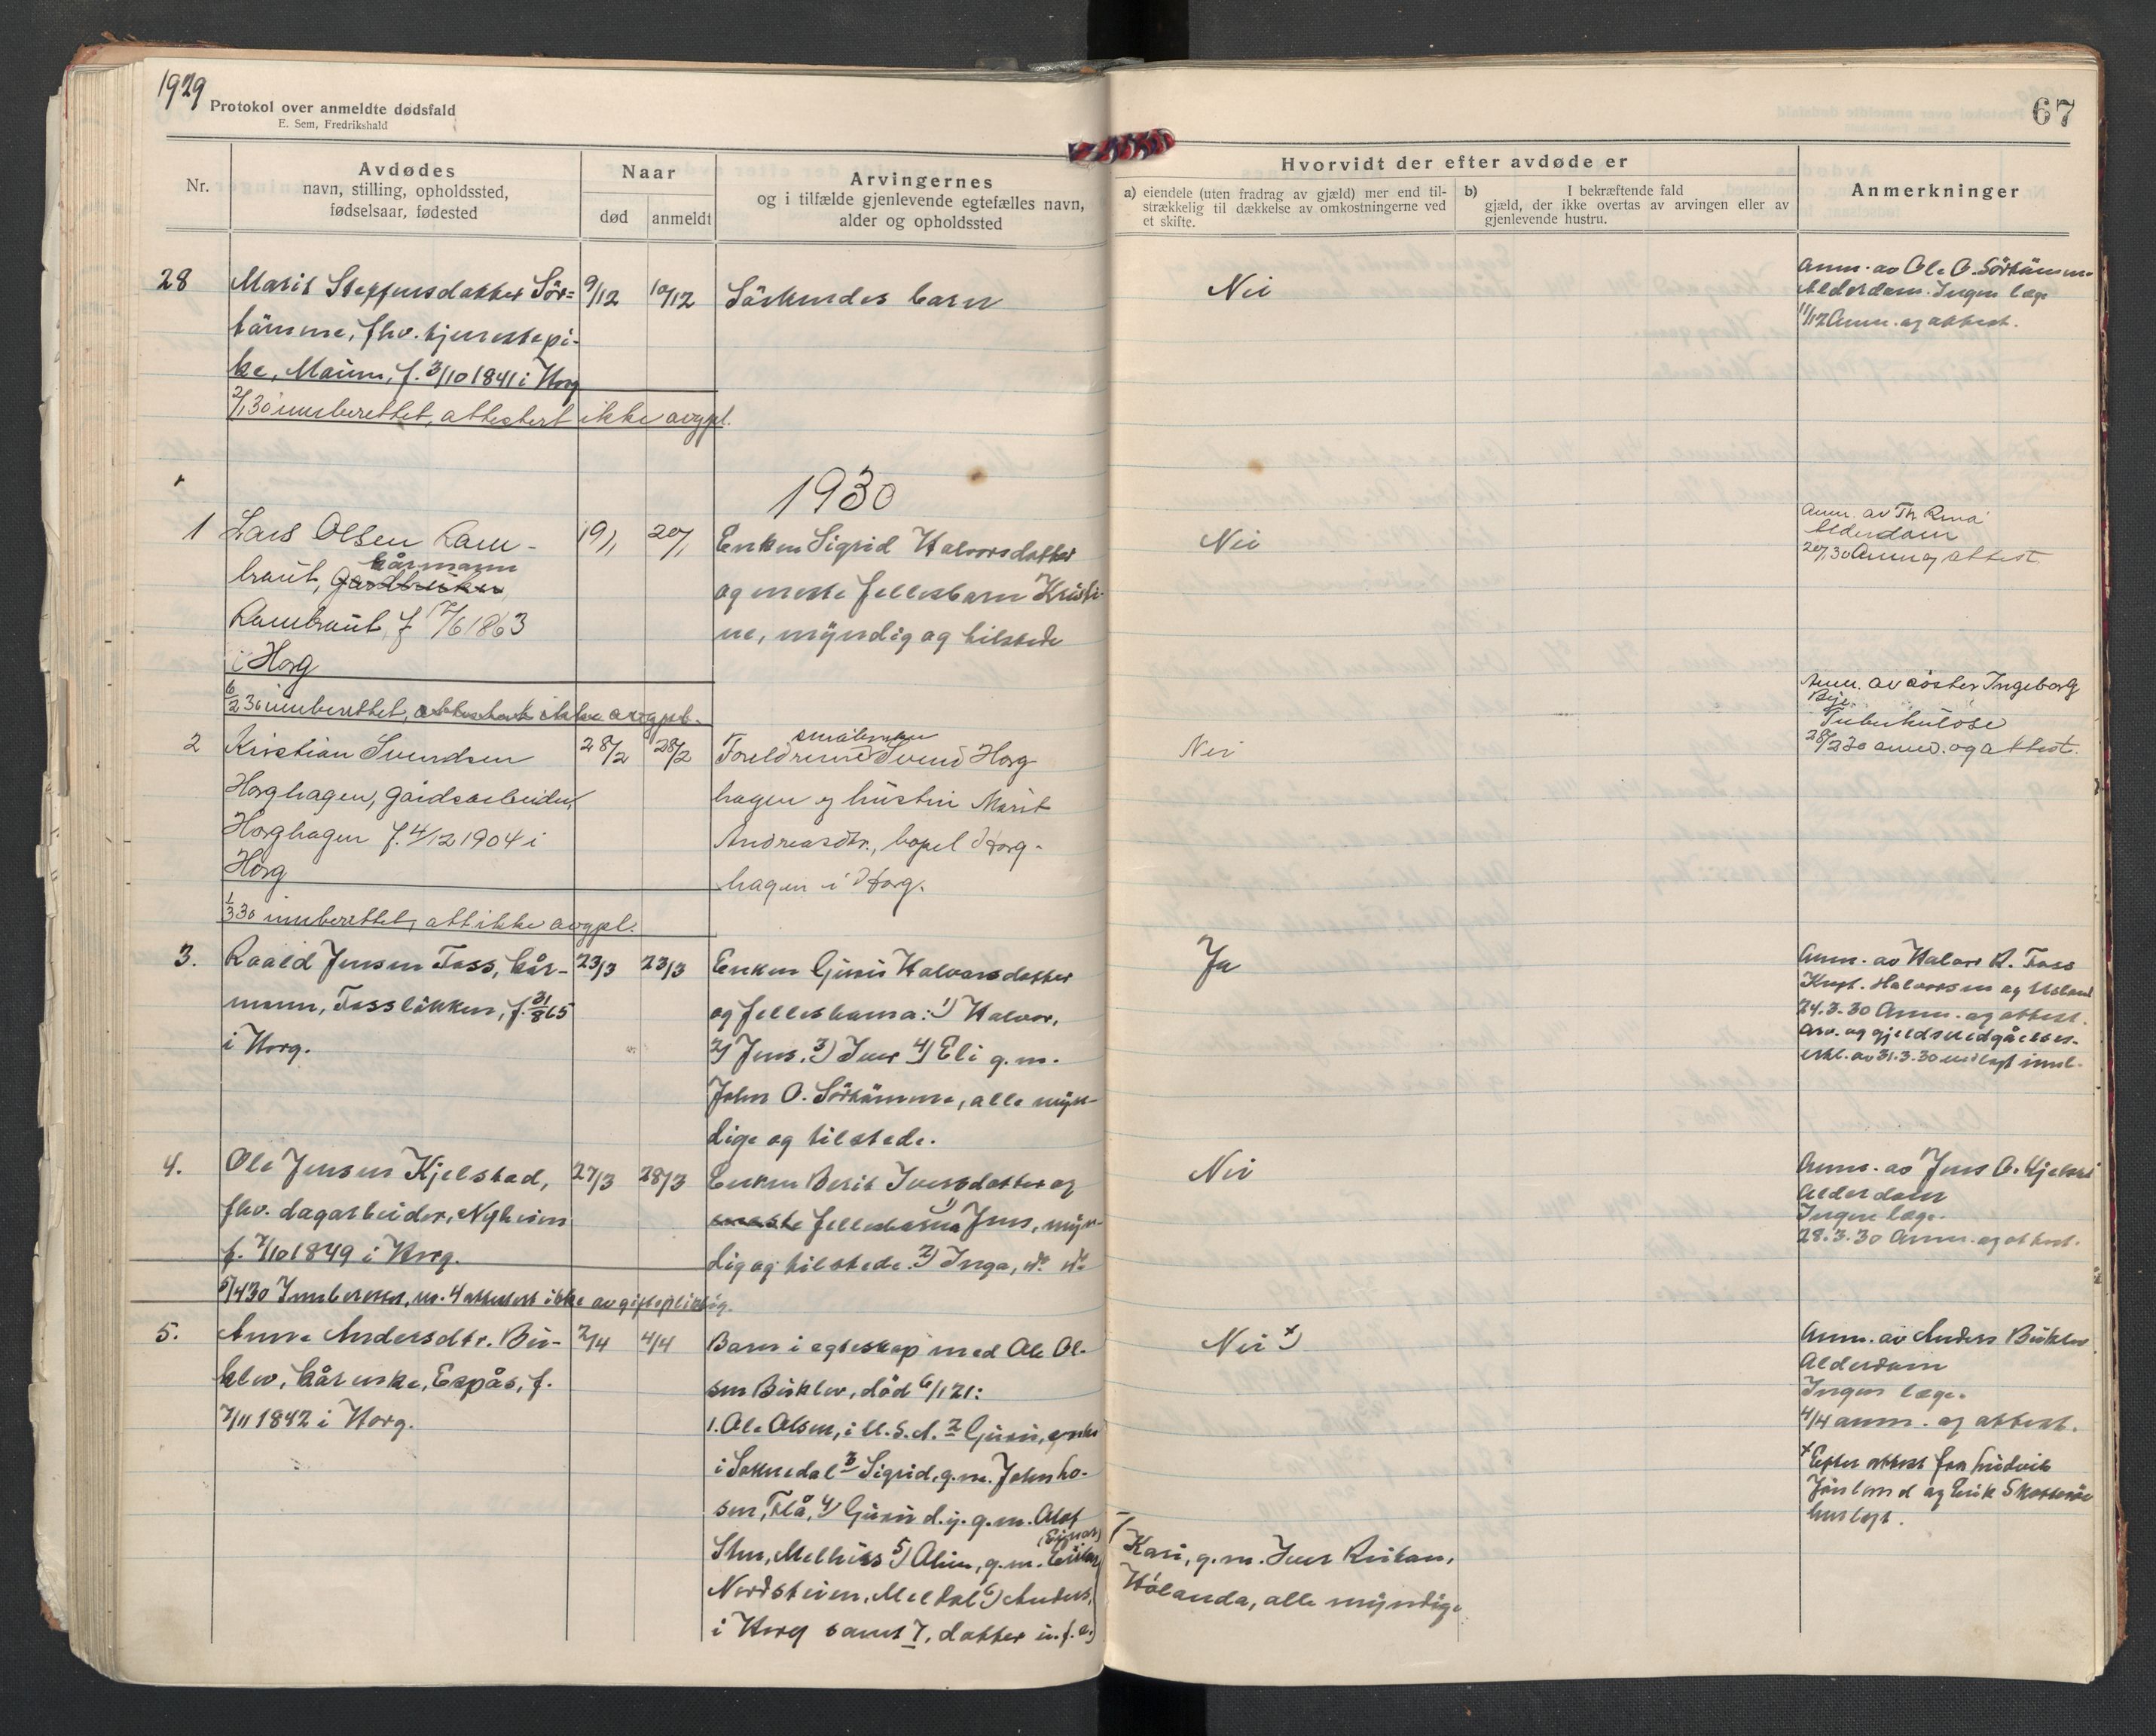 1929
Protokol over anmeldte dødsfald
E. Sem, Fredrikshald
67
Nr.
Avdødes
navn, stilling, opholdssted,
fødselsaar, fødested
Naar
død
anmeldt
Arvingernes
og i tilfælde gjenlevende egtefælles navn,
alder og opholdssted
Hvorvidt der efter avdøde er
a) eiendele (uten fradrag av gjæld) mer end til-
strækkelig til dækkelse av omkostningerne ved
et skifte.
b) I bekræftende fald
gjæld, der ikke overtas av arvingen eller av
gjenlevende hustru.
Anmerkninger
28
Marit Steffensdatter Sör=
tömme, fhv. tjenestepi-
ke, Mo, f. 3/10 1841 i Horg
2/1 30 innberettet, attestert ikke avgpl.
9/12
10/12
Söskendes barn
Nei
Anm. av Ole O. Sörtömme
Alderdom. Ingen læge
11/12 Anm. og attest.
1930
1
Lars Olsen Ram-
kårmann
braut, Gardbruker,
Rambraut, f 17/6 1863
i Horg
6/2 30 innberettet, attestert ikke avgpl.
19/1
20/1
Enken Sigrid Halvorsdatter
og eneste fellesbarn Kristi-
ne, myndig og tilstede
Nei
Anm. av Th
Alderdom
20/1 30 Anm og attest
2
Kristian Svendsen
Horghagen, gårdsarbeider,
Horghagen f. 4/12 1904 i
Horg
1/3 30 innberettet, att ikke avgpl.
28/2
28/2
Foreldrene Svend Horg
hagen og hustru Marit
Andreasdtr., bopel Horg-
hagen i Horg.
Nei
Anm. av söster Ingeborg
Tuberkulose
28/2 30 anm. og attest.
3.
Roald Jensen Foss, kår-
mann, Fosslökken, f. 31/8 65
i Horg.
23/3
23/3
Enken Guru Halvorsdatter
og fellesbarna: 1) Halvor,
2) Jens, 3) Iver 4) Eli g. m.
John O. Sörtömme, alle myn-
dige og tilstede.
Ja
Anm. av Halvor R. Foss
Halvorsen og
24.3.30 Anm. og attest.
Arv. og gjeldsvedgåelses-
erkl. av 31.3.30 vedlagt innb.
4.
Ole Jensen Kjelstad,
fhv. dagarbeider, Nyheim
f. 7/10 1849 i Horg.
5/4 30 Innberettet, nr. 4 attestert ikke avgiftspliktig.
27/3
28/3
Enken Berit Iversdatter og
eneste fellesbarna 1) Jens, myn-
dig og tilstede. 2) Inga, do. do.
Nei
Anm. av Jens O. Kjelstad
Alderdom
Ingen læge.
28.3.30 Anm. og attest.
5.
Anne Andersdtr. Bö-
klev, kårenke, Espås, f.
7/11 1842 i Horg.
2/4
4/4
Barn i egteskap med Ole Ol-
sen Böklev, död 6/1 21:
1. Ole Olsen, i U.S.A. 2 Guru, enke
i Soknedal 3 Sigrid, g. m. John Lo-
sen, Flå, 4) Guru d. y. g. m. Olof
(Einar)
Melhus 5) Oline, g. m.
Nordsteien, Meldal 6) Anders,
i Horg samt 7, datter
Nei x)
7
Kari, g. m. Iver
Hölanda, alle myndige.
Anm. av Anders Böklev
Alderdom
Ingen læge.
4/4 anm. og attest.
x Efter attest fra Ludvik
og Erik